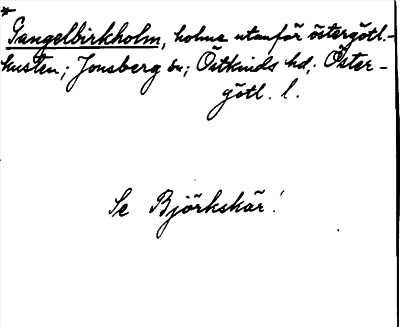 *
Gangelbirkholm, holme utanför östergötl.-
kusten; Jonsberg sn; Östkinds hd; Öster-
götl. l.
Se Björkskär!